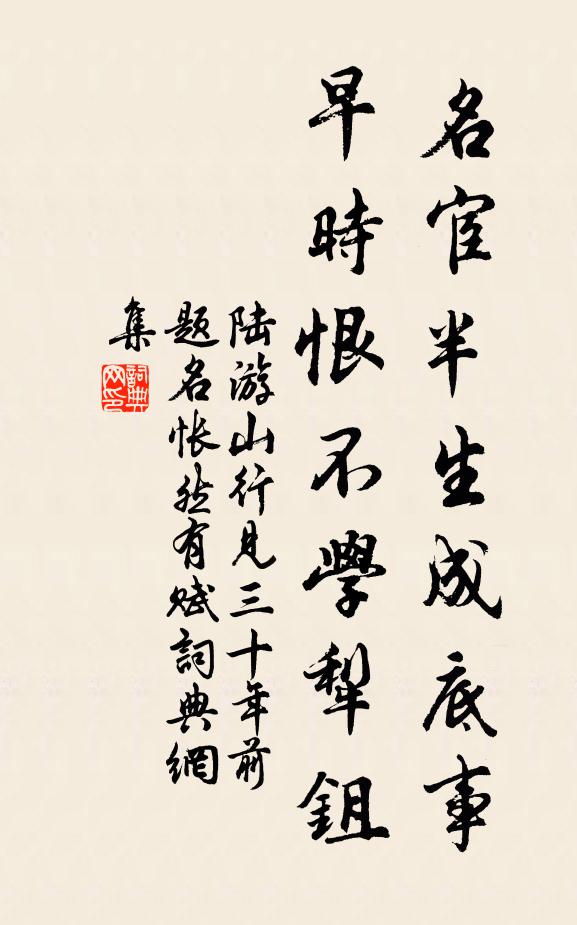 名宦半生成底事
早時恨不學犁鉏
陆游山行見三十年前
题名怅然有赋詞典網
集
詞典
网印